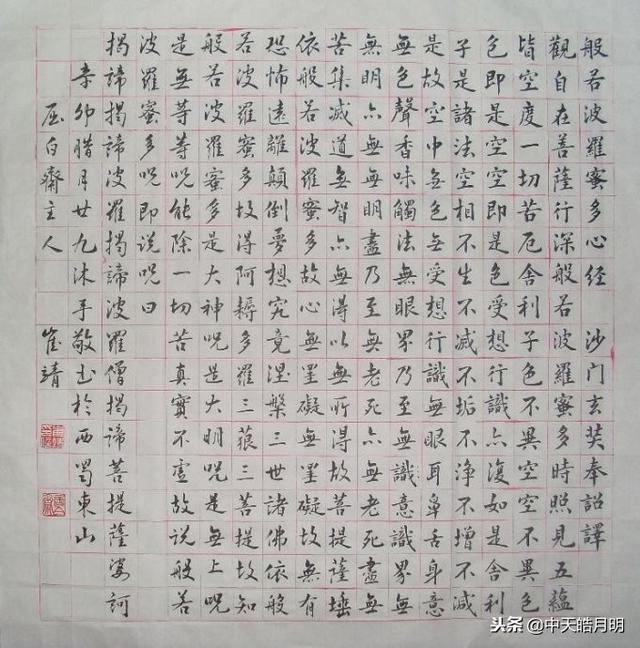 般若波羅蜜多心經 沙门玄奘奉詔譯
觀自在菩薩行深般若波羅蜜多時照見五蘊
皆空度一切苦厄舍利子色不異空空不異色
色即是空空即是色受想行識亦復如是舍利
子是諸法空相不生不減不垢不淨不增不減
是故空中無色無受想行識無眼耳鼻舌身意
無色聲香味觸法無眼界乃至無識意識界無
無明亦無無明盡乃至無老死亦無老死盡無
苦集減道無智亦無得以無所得故菩提薩埵
依般若波羅蜜多故心無罣礙無罣礙故無有
恐怖遠離顛倒夢想究竟涅槃三世諸佛依般
若波羅蜜多故得阿耨多羅三藐三菩提故知
般若波羅蜜多是大神咒是大明咒是無上咒
是無等等咒能除一切苦真實不虛故說般若
波羅蜜多咒即說咒曰
揭諦揭諦波羅揭諦波羅僧揭諦菩提薩婆訶
辛卯腊月廿九沐手敬書於西蜀東山
白齋主人 崔靖
头条 @中天皓月明